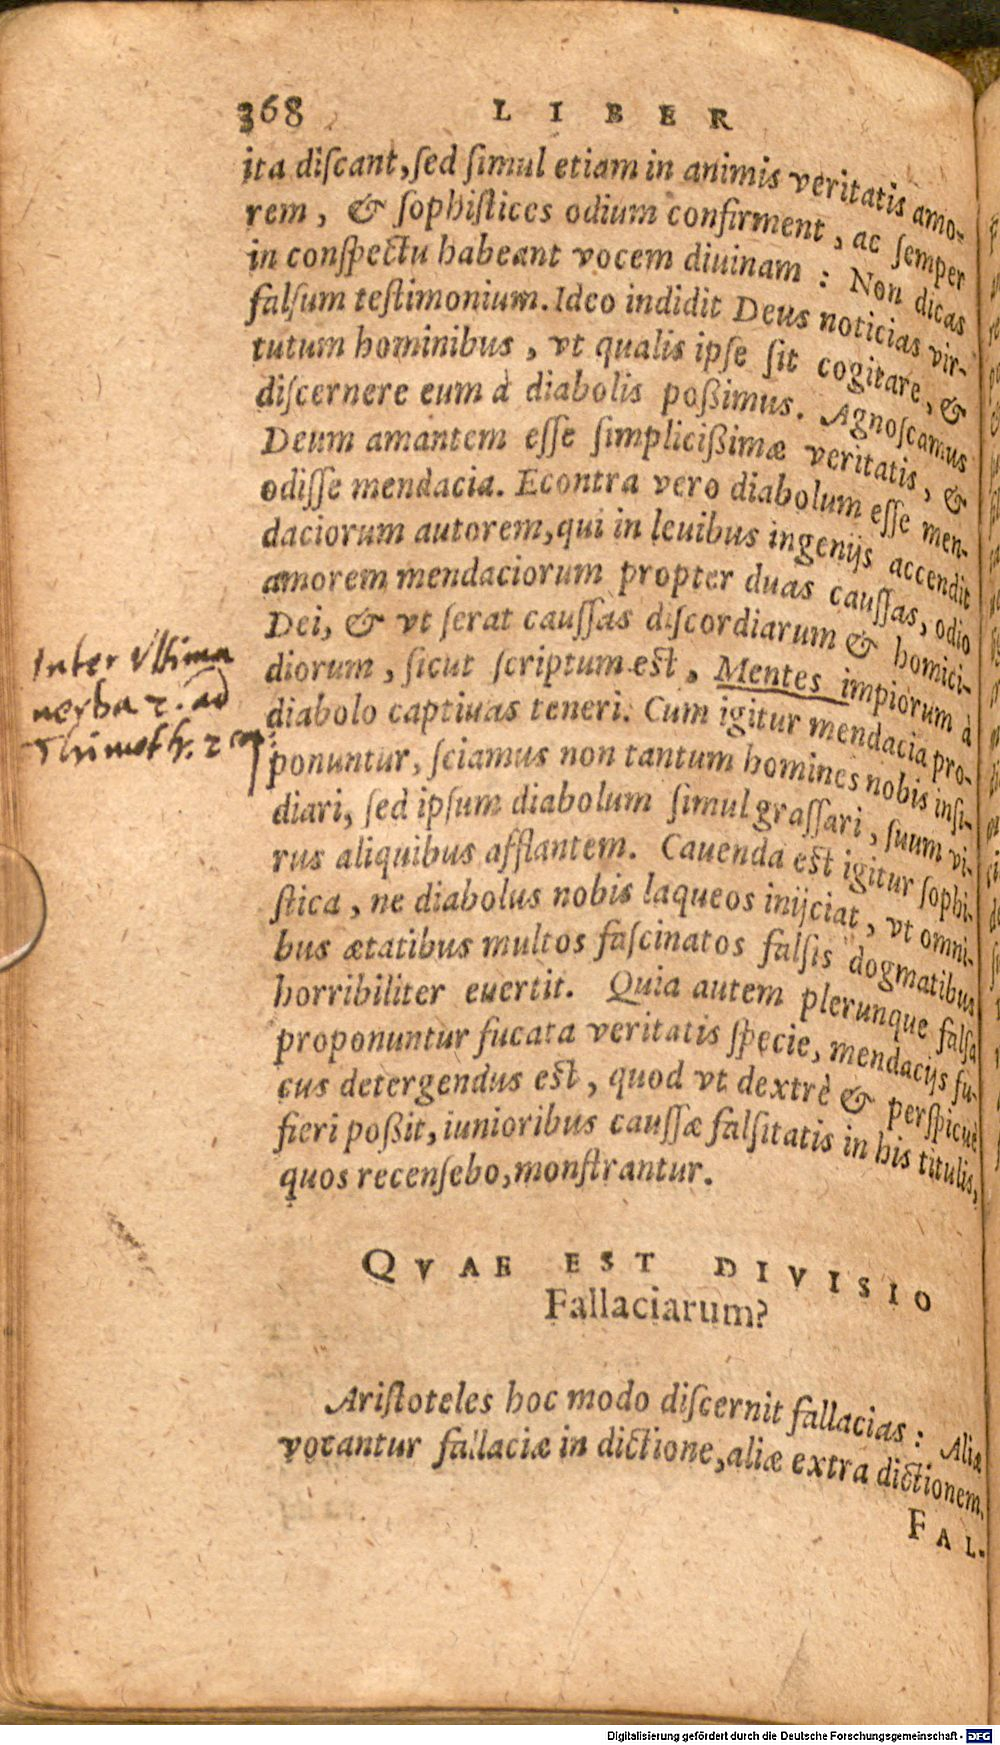 368 LIBER
ita diſcant, ſed ſimul etiam in animis veritatis amo-
rem, & ſophiſtices odium confirment, ac ſemper
in conſpectu habeant vocem diuinam: Non dicas
falſum teſtimonium. Ideo indidit Deus noticias vir-
tutum hominibus, vt qualis ipſe ſit cogitare, &
diſcernere eum à diabolis poßimus. Agnoſcamus
Deum amantem eſſe ſimplicißimæ veritatis, &
odiſſe mendacia. Econtra vero diabolum eſſe men-
daciorum autorem, qui in leuibus ingenijs accendit
amorem mendaciorum propter duas cauſſas, odio
Dei, & vt ſerat cauſſas diſcordiarum & homici-
diorum, ſicut ſcriptum est, Mentes impiorum à
diabolo captiuas teneri. Cum igitur mendacia pro-
ponuntur, ſciamus non tantum homines nobis inſi-
diari, ſed ipſum diabolum ſimul graſſari, ſuum vi-
rus aliquibus afflantem. Cauenda est igitur ſophi-
ſtica, ne diabolus nobis laqueos inijciat, vt omni-
bus ætatibus multos faſcinatos falſis dogmatibus
horribiliter euertit. Quia autem plerunque falſa
proponuntur fucata veritatis ſpecie, mendacijs fu-
cus detergendus est, quod vt dextrè & perſpicuè
fieri poßit, iunioribus cauſſæ falſitatis in his titulis,
quos recenſebo, monſtrantur.
Inter Vltima
uerba 2. ad
Thimoth. 2 cap:
QVAE EST DIVISIO
Fallaciarum?
Ariſtoteles hoc modo diſcernit fallacias: Aliæ
vocantur fallaciæ in dictione, aliæ extra dictionem.
FAL-
Digitalisierung gefördert durch die Deutsche Forschungsgemeinschaft - DFG